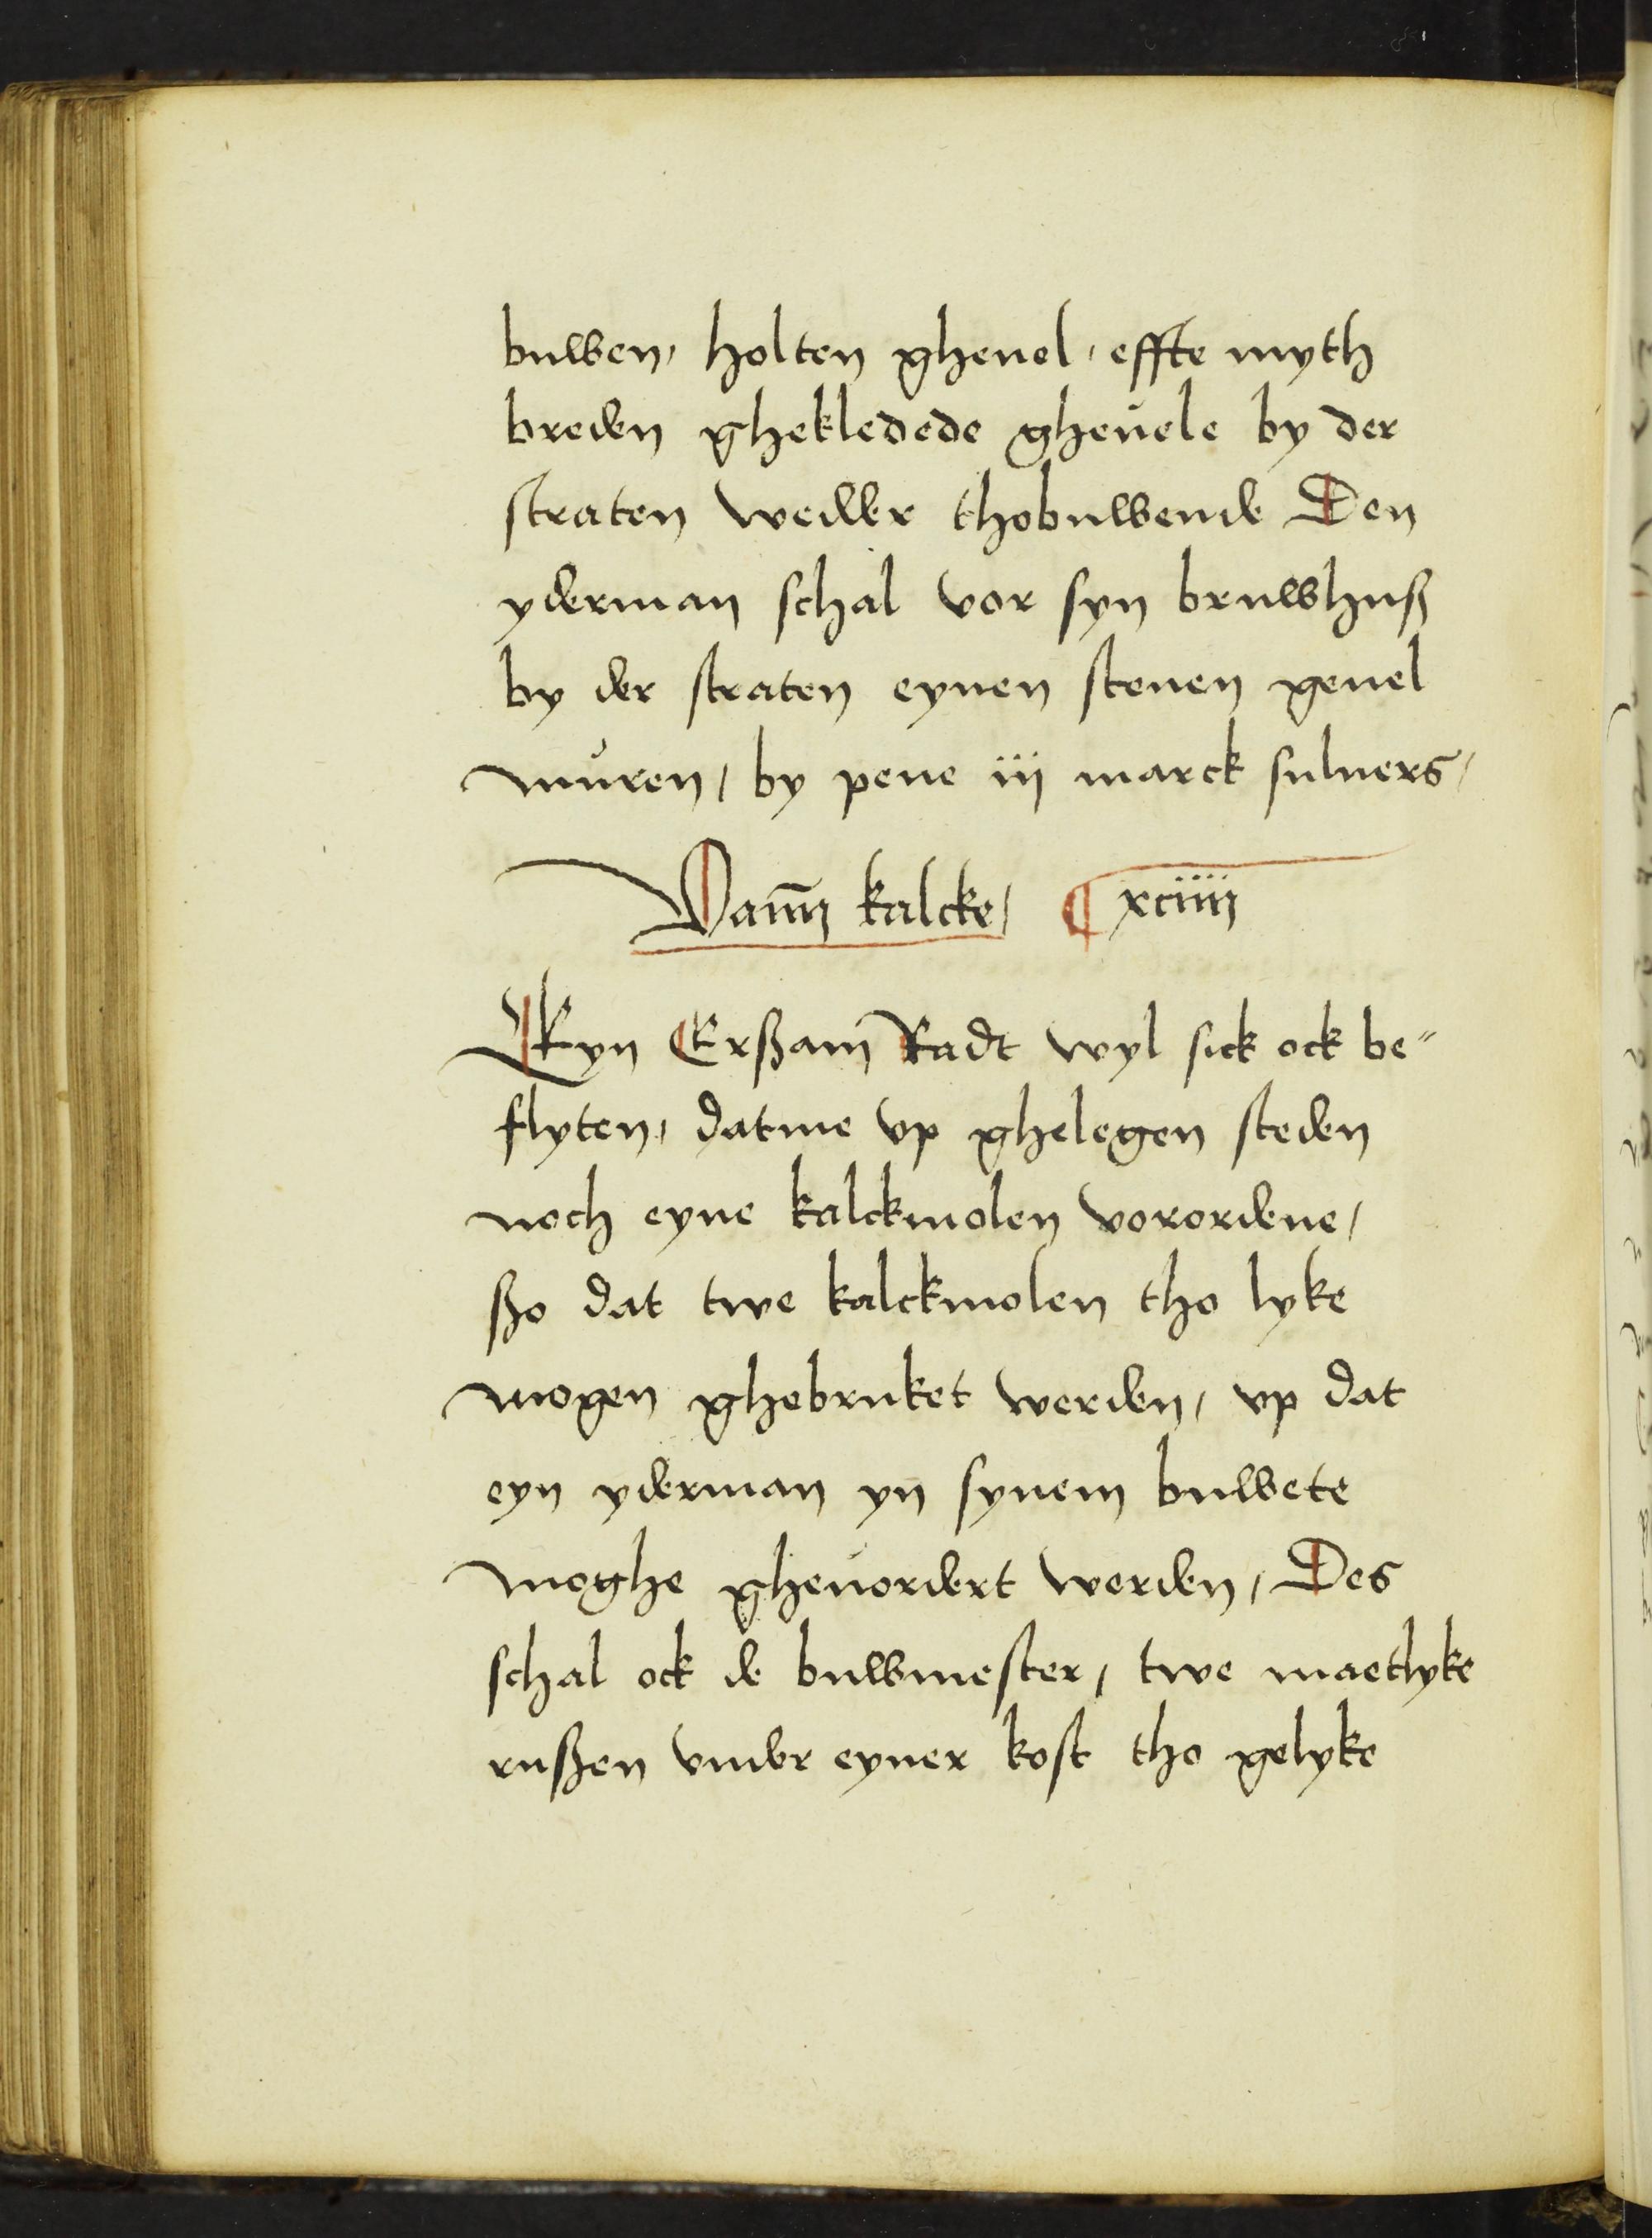 buwen, holten gheuel, effte myth
breden ghekledede gheuele by der
straten wedder thobuwende Den
yderman schal vor syn bruwhuß
by der straten eynen stenen geuel
muren, by pene iij marck suluers,
Vamm kalcke, ¶ xciiij
Eyn Erßam Radt wyl sick ock be"
flyten, datme vp ghelegen steden
noch eyne kalckmolen vorordene,
ßo dat twe kalckmolen tho lyke
mogen ghebruket werden, vp dat
eyn yderman yn synem buwete
moghe gheuordert werden, Des
schal ock de buwmester, twe maetlyke
rußen vnder eyner kost tho gelyke